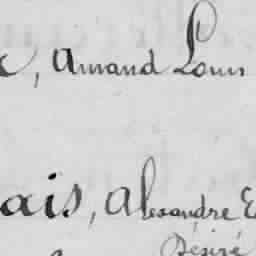 , Amand Louis
ais, Alexandre E
Désiré